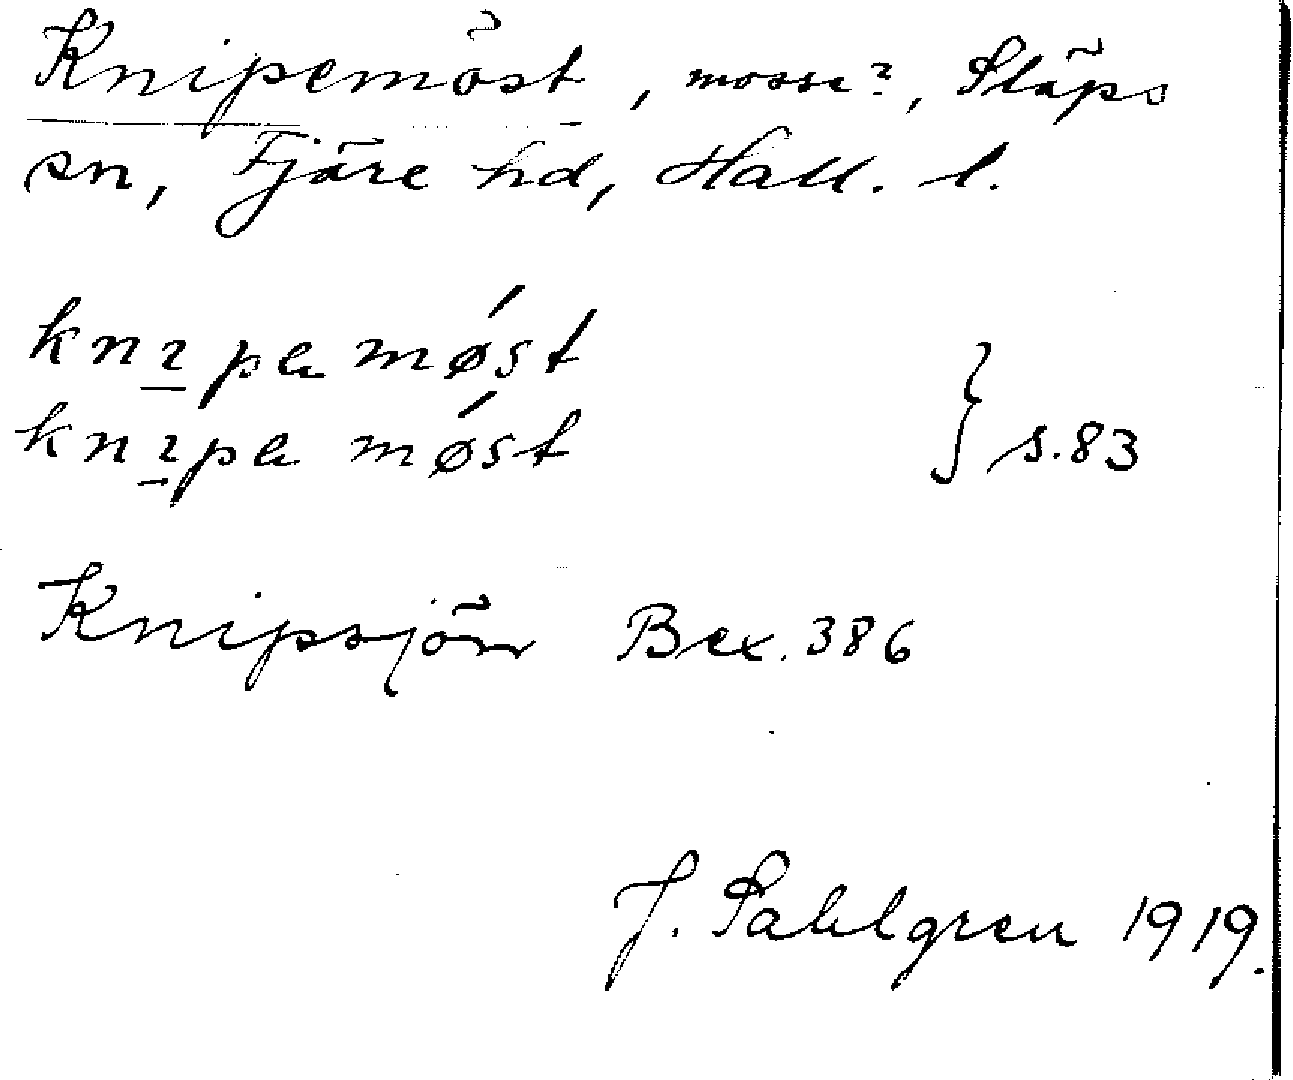 Knipemöst, mosse?, Släps
sn, Fjäre hd, Hall. l.
knɪpe møst
knɪpe møst } s.83
Knipsjön Bex. 386
J. Sahlgren 1919.